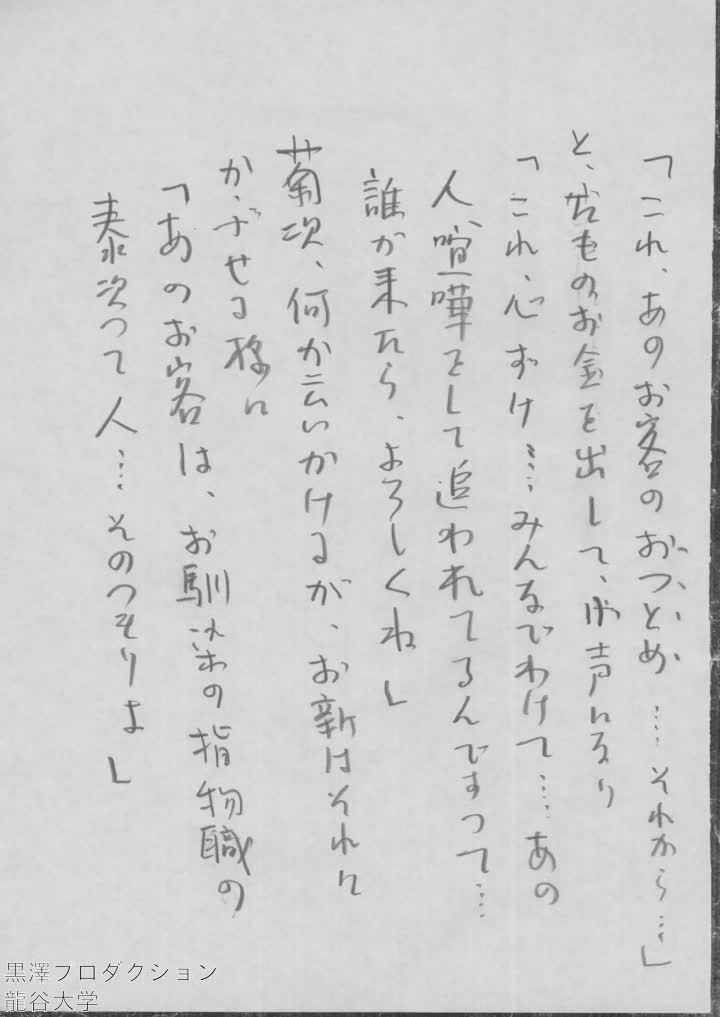 「これ、あのお客のおつとめ……それから…」
と、くるもの、お金を出して、小声になり
「これ、心ずけ……みんなでわけて……あの
人、喧嘩をして追われてるんですって…
誰か来たら、よろしくね」
菊次、何か云いかけるが、お新はそれに
かぶせる様に
「あのお客は、お馴染の指物職の
泰次って人……そのつもりよ」
黒澤プロダクション
龍谷大学